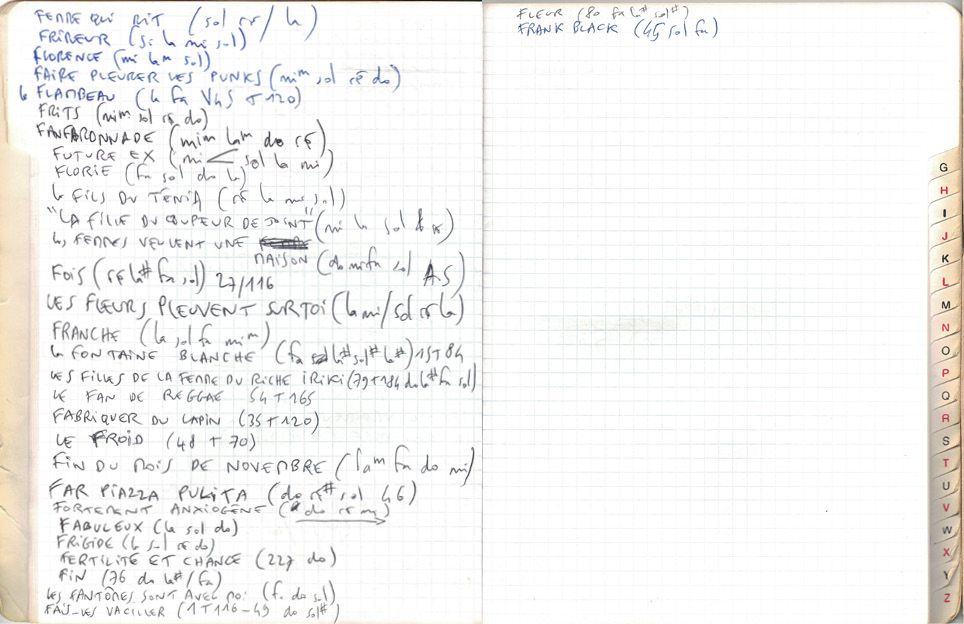 FEMME QUI RIT (sol ré / la)
FRIMEUR (si la mi sol)
FLORENCE (mi lam sol)
FAIRE PLEURER LES PUNKS (mim sol ré do)
le FLAMBEAU (la fa V45 T 120)
FRITS (mim sol ré do)
FANFARONNADE (mim lam do ré)
FUTURE EX (mi < sol la mi)
FLORIE (fa sol do la)
le FILS DU TÉNIA (ré la mi sol)
"LA FILLE DU COUPEUR DE JOINT" (mi la sol ré)
les FEMMES VEULENT UNE
MAISON (do mi fa sol A5)
FOIS (ré la# fa sol) 27/116
LES FLEURS PLEUVENT SUR TOI (la mi / sol ré la)
FRANCHE (la sol fa mim)
la FONTAINE BLANCHE (fa la# sol# la#) 15T84
LES FILLES DE LA FEMME DU RICHE IRIKI (79T184 do la# fa sol)
LE FAN DE REGGAE 54T165
FABRIQUER DU LAPIN (35T120)
LE FROID (48T70)
FIN DU MOIS DE NOVEMBRE (lam fa do mi)
FAR PIAZZA PULITA (do ré# sol 46)
FORTEMENT ANXIOGÈNE (do ré mi)
FABULEUX (la sol do)
FRIGIDE (la sol ré do)
FERTILITÉ ET CHANCE (227 do)
FIN (76 do la# / fa)
LES FANTÔMES SONT AVEC MOI (fa do sol)
FAIS-LES VACILLER (1T116-49 do sol#)
FLEUR (80 fa la# sol#)
FRANK BLACK (45 sol fa)
G
H
I
J
K
L
M
N
O
P
Q
R
S
T
U
V
W
X
Y
Z